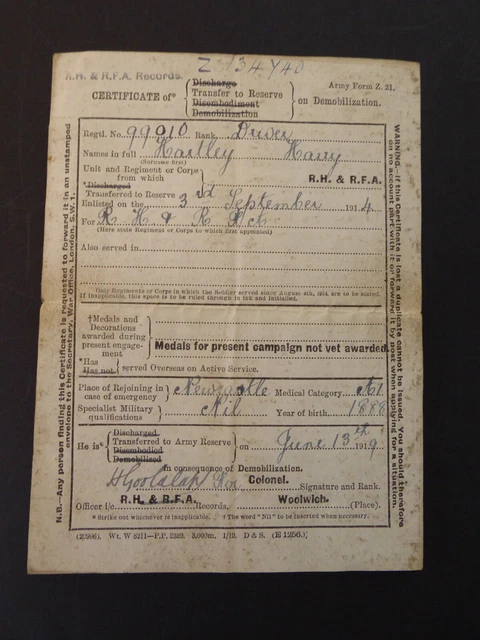 R.H. & R.F.A. Records.
Z 134740
CERTIFICATE of*
Discharge
Transfer to Reserve
Disembodiment
Demobilization
on Demobilization.
Army Form Z. 21.
Regtl. No. 99010 Rank Driver
Names in full Hartley Harry
(Surname first)
Unit and Regiment or Corps
from which
R.H. & R.F.A.
*Discharged
Transferred to Reserve
Enlisted on the 3rd September 1914
For R H & R F A
(Here state Regiment or Corps to which first appointed)
Also served in
Only Regiments or Corps in which the Soldier served since August 4th, 1914, are to be stated.
If inapplicable, this space is to be ruled through in ink and initialled.
†Medals and
Decorations
awarded during
present engage-
ment
Medals for present campaign not yet awarded.
*Has
Has not
served Overseas on Active Service.
Place of Rejoining in
case of emergency
Newcastle
Medical Category A1
Specialist Military
qualifications
Nil
Year of birth 1888
He is*
Discharged
Transferred to Army Reserve
Disembodied
Demobilized
on June 13th 1919
in consequence of Demobilization.
Colonel.
Signature and Rank.
R.H. & R.F.A.
Officer i/c Records.
Woolwich.
(Place).
* Strike out whichever is inapplicable. † The word "Nil" to be inserted when necessary.
(2)506). Wt. W 8211—P.P. 2329. 3,000m. 1/19. D & S. (E 1256.)
N.B.—Any person finding this Certificate is requested to forward it in an unstamped
envelope to the Secretary, War Office, London, S.W. 1.
WARNING.—If this Certificate is lost a duplicate cannot be issued. You should therefore
on no account part with it or forward it by post when applying for a situation.